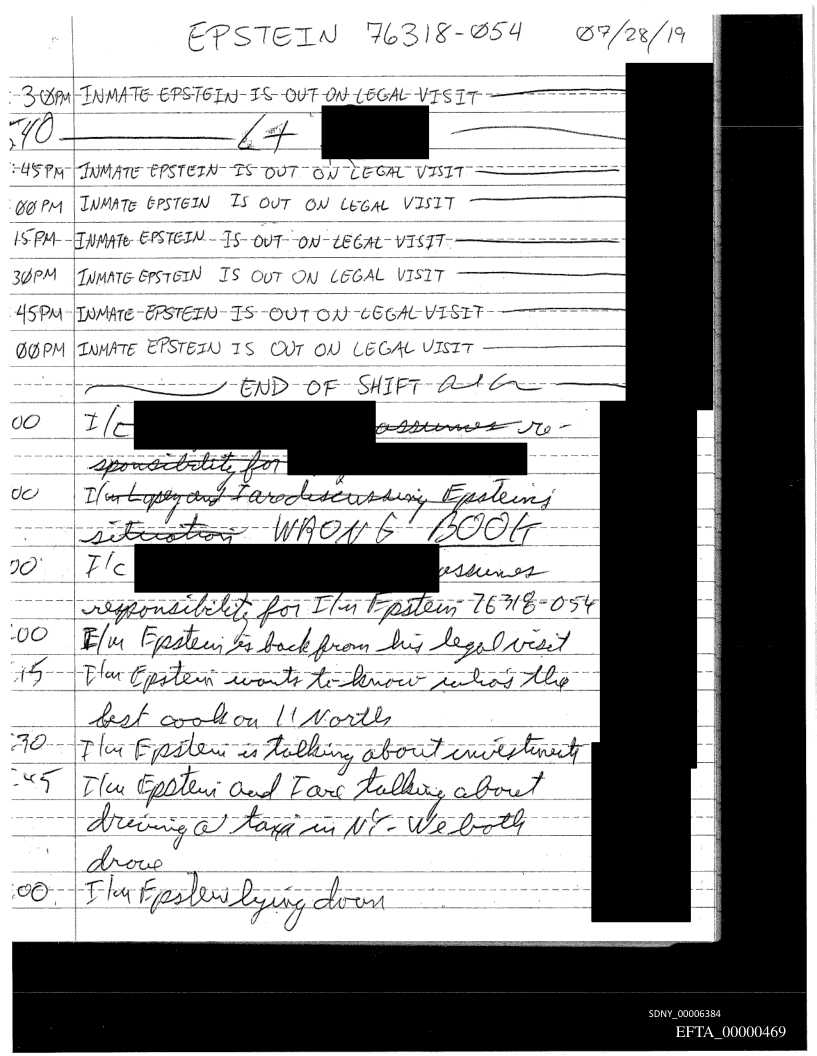 EPSTEIN 76318-054 07/28/19
:30PM INMATE EPSTEIN IS OUT ON LEGAL VISIT
:40 Lt
:45PM INMATE EPSTEIN IS OUT ON LEGAL VISIT
:00PM INMATE EPSTEIN IS OUT ON LEGAL VISIT
15PM INMATE EPSTEIN IS OUT ON LEGAL VISIT
30PM INMATE EPSTEIN IS OUT ON LEGAL VISIT
45PM INMATE EPSTEIN IS OUT ON LEGAL VISIT
00PM INMATE EPSTEIN IS OUT ON LEGAL VISIT
END OF SHIFT
00 I/c assumes re-
sponsibility for
00 I/m and I are discussing Epstein's
situation WRONG BOOK
00 I/c assumes
responsibility for I/m Epstein 76318-054
:00 I/m Epstein is back from his legal visit
:15 I/m Epstein wants to know who's the
best cook on 11 North
:30 I/m Epstein is talking about investments
:45 I/m Epstein and I are talking about
driving a taxi in NY - We both
drove
:00 I/m Epstein lying down
SDNY_00006384
EFTA_00000469